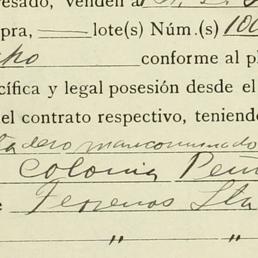 resado, venden al
pra, lote(s) Núm.(s) 100
cho conforme al pl
cífica y legal posesión desde el
el contrato respectivo, teniendo
dero mancomunado
Colonia
Terrenos Sta
" "